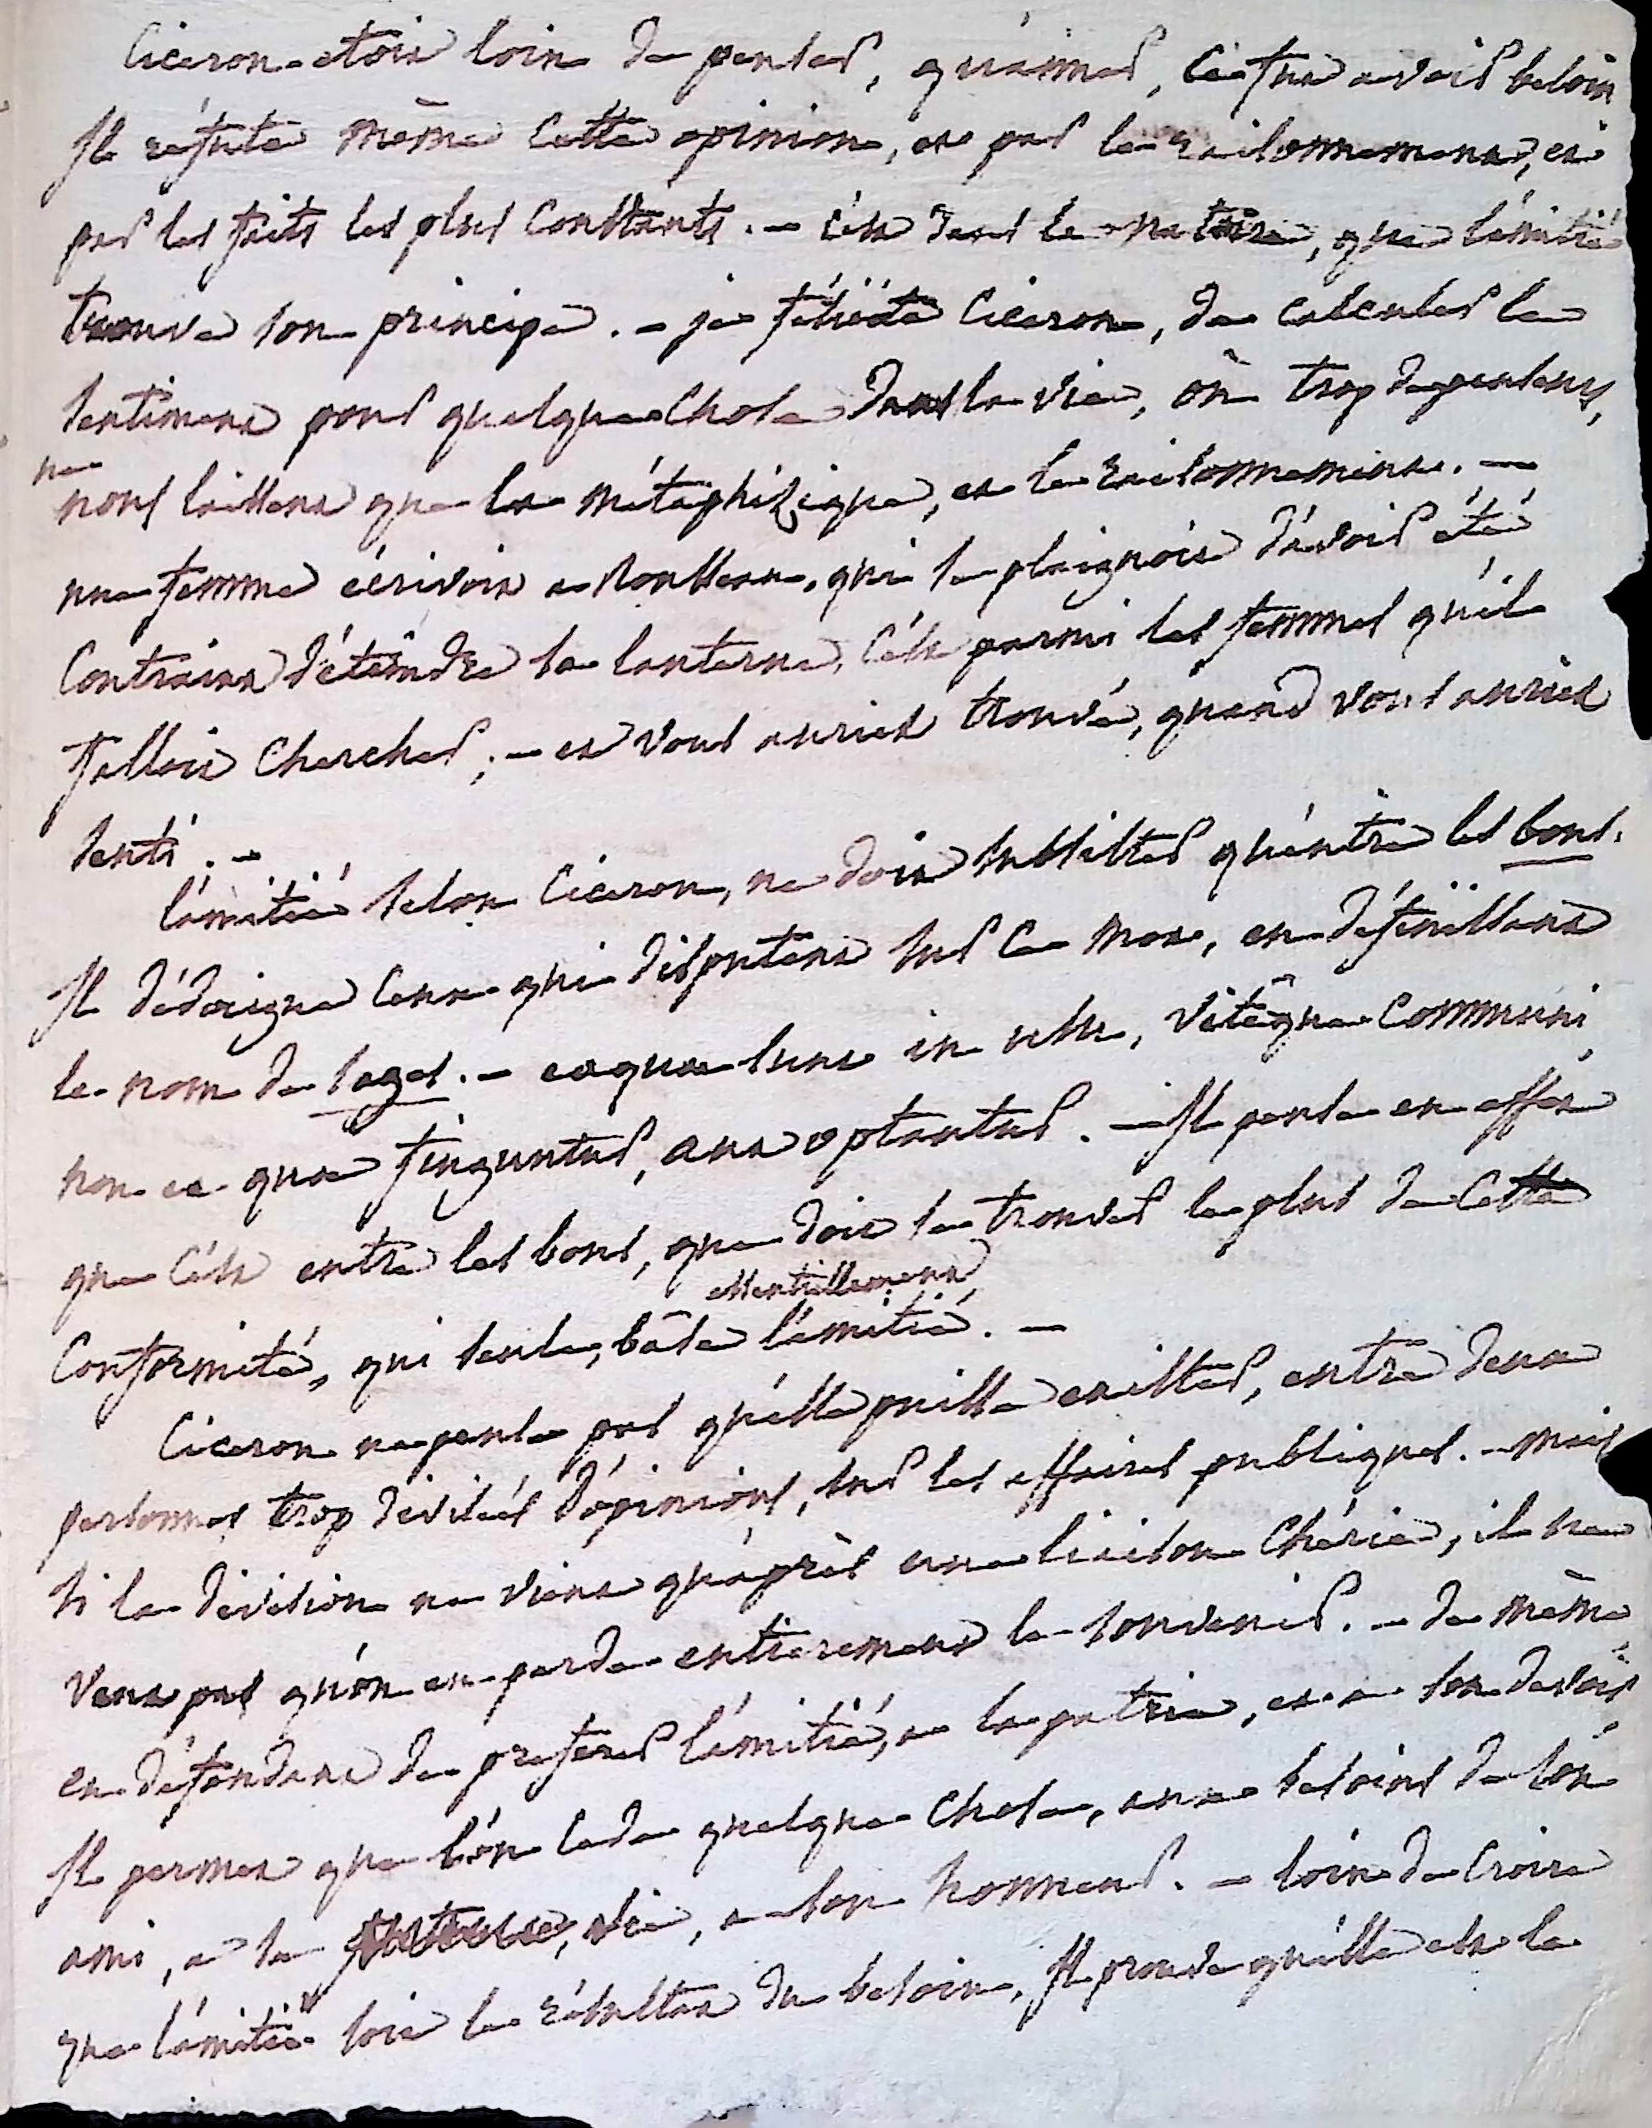 Ciceron etoit loin de penser, qu'aimer, c'est un avoir besoin
Il réfute même cette opinion, et par le raisonnement, et
par les faits les plus constants. - c'est dans la nature, que l'amitié
trouve son principe. - je félicite Ciceron, de calculer le
sentiment pour quelque chose dans la vie, où trop de penseurs,
ne
nous laissent que la métaphizique, et le raisonnement. -
une femme écrivoit a Rousseau, qui se plaignoit d'avoir été
contraint d'éteindre sa lanterne, c'est parmi les femmes qu'il
falloit chercher; - et vous auriez trouvé, quand vous auriez
senti. -
l'amitié selon Ciceron, ne doit subsister qu'entre les bons.
Il dédaigne ceux qui disputent sur ce mot, en définissant
le nom de sages. - ea quae sunt in usu, vitâque communi,
non ea quae finguntur, aut optantur. - Il pense en effet
que c'est entre les bons, que doit se trouver le plus de cette
essentiellement
conformité, qui seule, base l'amitié. -
Ciceron ne pense pas qu'elle puisse exister, entre deux
personnes trop divisées d'opinions, sur les affaires publiques. - mais
si la division ne vient qu'après une liaison chérie, il ne
veut pas qu'on en perde entierement le souvenir. - de même
en défendant de preferer l'amitié, a la patrie, et a son devoir
Il permet que l'on cede quelque chose, aux besoins de son
ami, a sa vie, a son honneur. - loin de croire
que l'amitié soit le résultat du besoin, Il prouve qu'elle est le